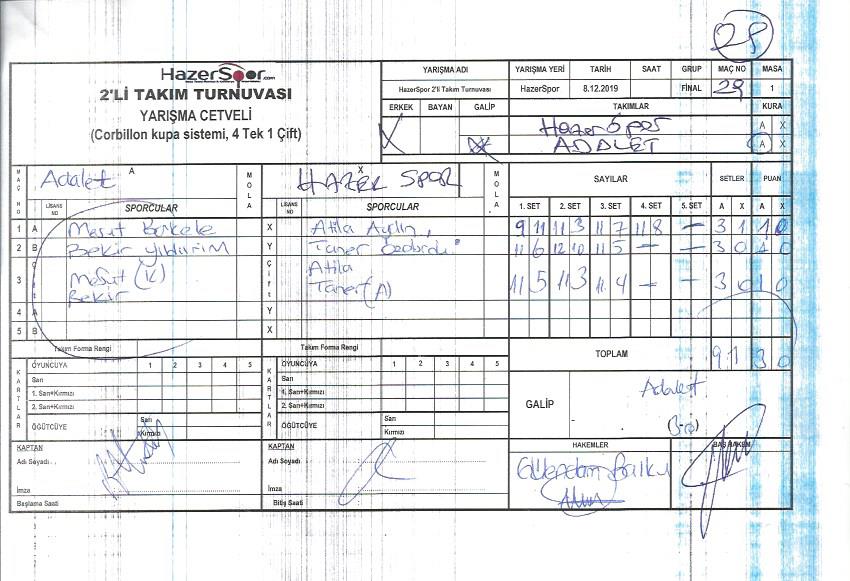 28
HazerSpor.com
2'Lİ TAKIM TURNUVASI
YARIŞMA CETVELİ
(Corbillon kupa sistemi, 4 Tek 1 Çift)
YARIŞMA ADI YARIŞMA YERİ TARİH SAAT GRUP MAÇ NO MASA
HazerSpor 2'li Takım Turnuvası HazerSpor 8.12.2019 FİNAL 28 1
ERKEK BAYAN GALİP TAKIMLAR KURA
X Hazer Spor A X
X ADALET A X
MAÇ NO A MOLA X MOLA SAYILAR SETLER PUAN
Adalet HAZER SPOR
LİSANS NO SPORCULAR LİSANS NO SPORCULAR 1. SET 2. SET 3. SET 4. SET 5. SET A X A X
1 A Mesut X Atila Aydın 9 11 11 3 11 7 11 8 — 3 1 1 0
2 B Bekir Yıldırım Y Taner 11 6 12 10 11 5 — — 3 0 1 0
3 Çift Mesut (K) Bekir Çift Atila Taner (A) 11 5 11 3 11 4 — — 3 0 1 0
4 A Y
5 B X
Takım Forma Rengi Takım Forma Rengi TOPLAM 9 1 3 0
KARTLAR OYUNCUYA 1 2 3 4 5 KARTLAR OYUNCUYA 1 2 3 4 5
Sarı Sarı
1. Sarı+Kırmızı 1. Sarı+Kırmızı
2. Sarı+Kırmızı 2. Sarı+Kırmızı
GALİP Adalet
(3-0)
ÖĞÜTCÜYE Sarı Kırmızı ÖĞÜTCÜYE Sarı Kırmızı
KAPTAN KAPTAN HAKEMLER BAŞ HAKEM
Adı Soyadı Adı Soyadı
İmza İmza
Başlama Saati Bitiş Saati